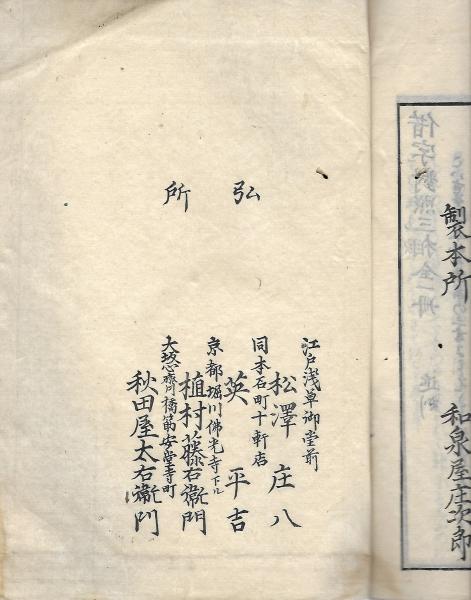 製本所　和泉屋庄次郎
弘所
江戸浅草御堂前
松澤庄八
同本石町十軒店
英平吉
京都堀川佛光寺下ル
植村藤右衞門
大坂心斎橋筋安堂寺町
秋田屋太右衞門